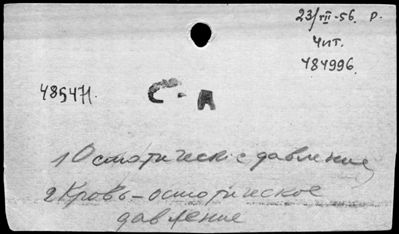 23/VII-56. р.
Чит.
484996.
485471.
С-А
1) Осмотическ. давление
2 Кровь - осмотическое
давление